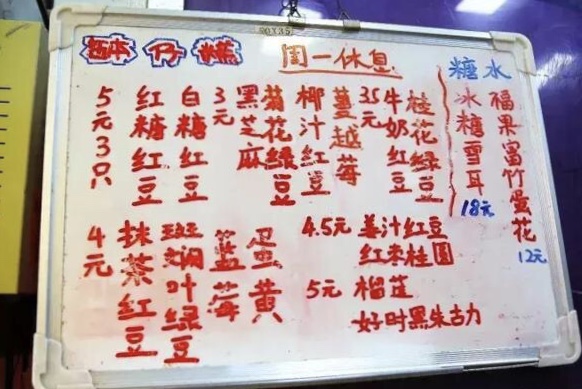 90X35
砵仔糕
周一休息
5元3只
红糖红豆
白糖红豆
3元
黑芝麻
菊花绿豆
椰汁红豆
蔓越莓
3.5元
牛奶红豆
桂花绿豆
4元
抹茶红豆
斑澜叶绿豆
蓝莓
蛋黄
4.5元 姜汁红豆
红枣桂圆
5元 榴莲
好时黑朱古力
糖水
冰糖雪耳
18元
福果富竹蛋花
12元